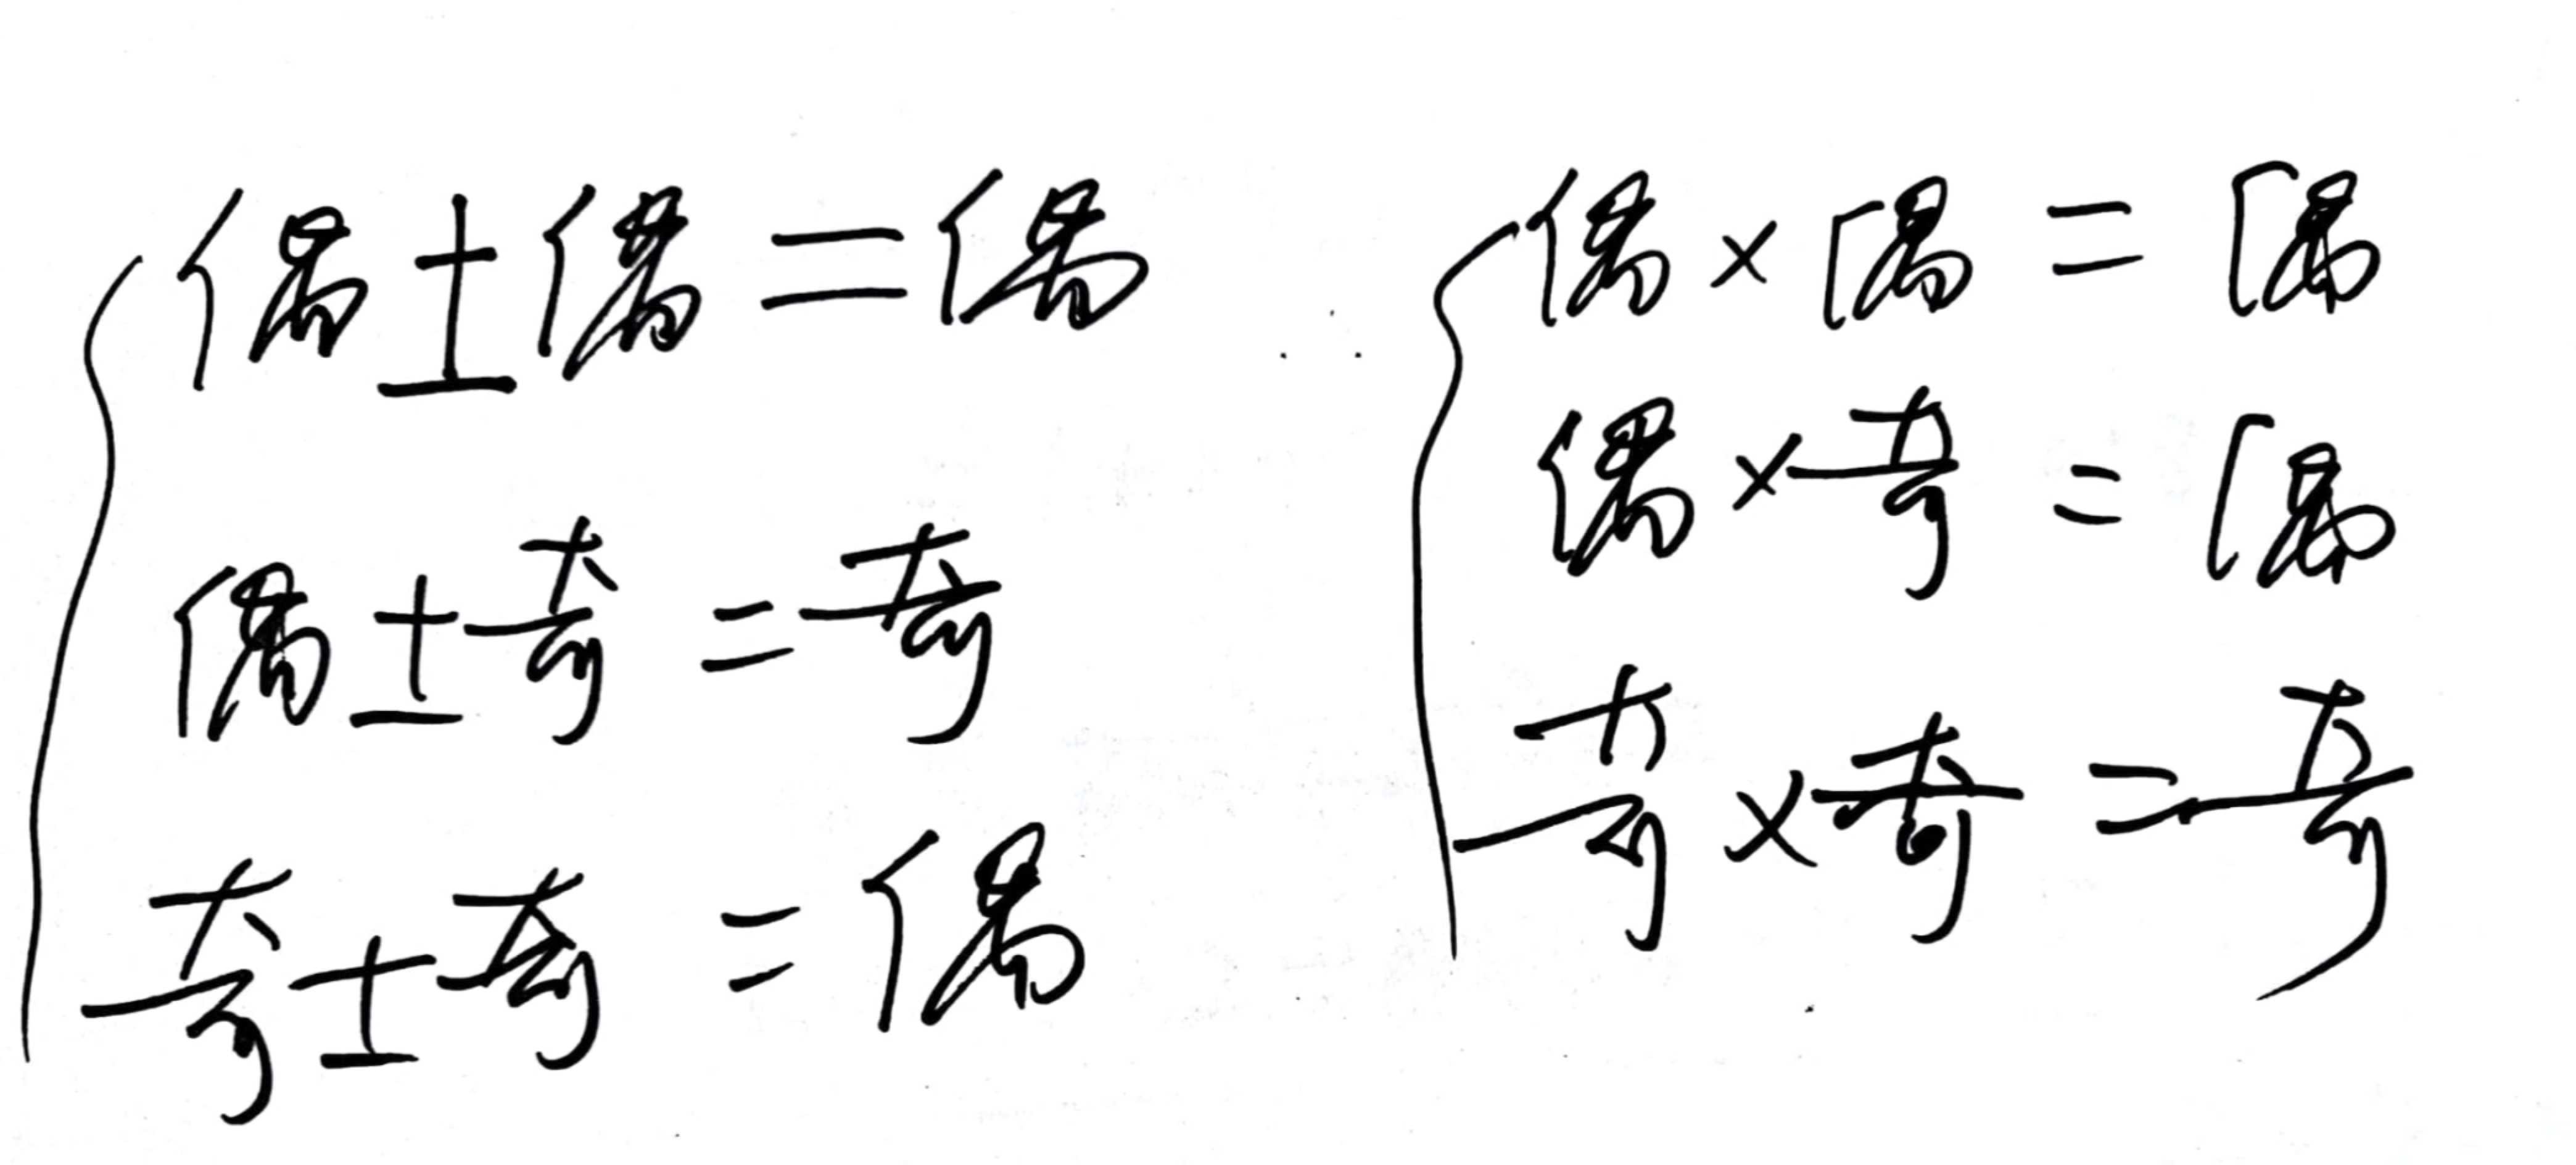 偶±偶=偶
偶±奇=奇
奇±奇=偶
偶×偶=偶
偶×奇=偶
奇×奇=奇